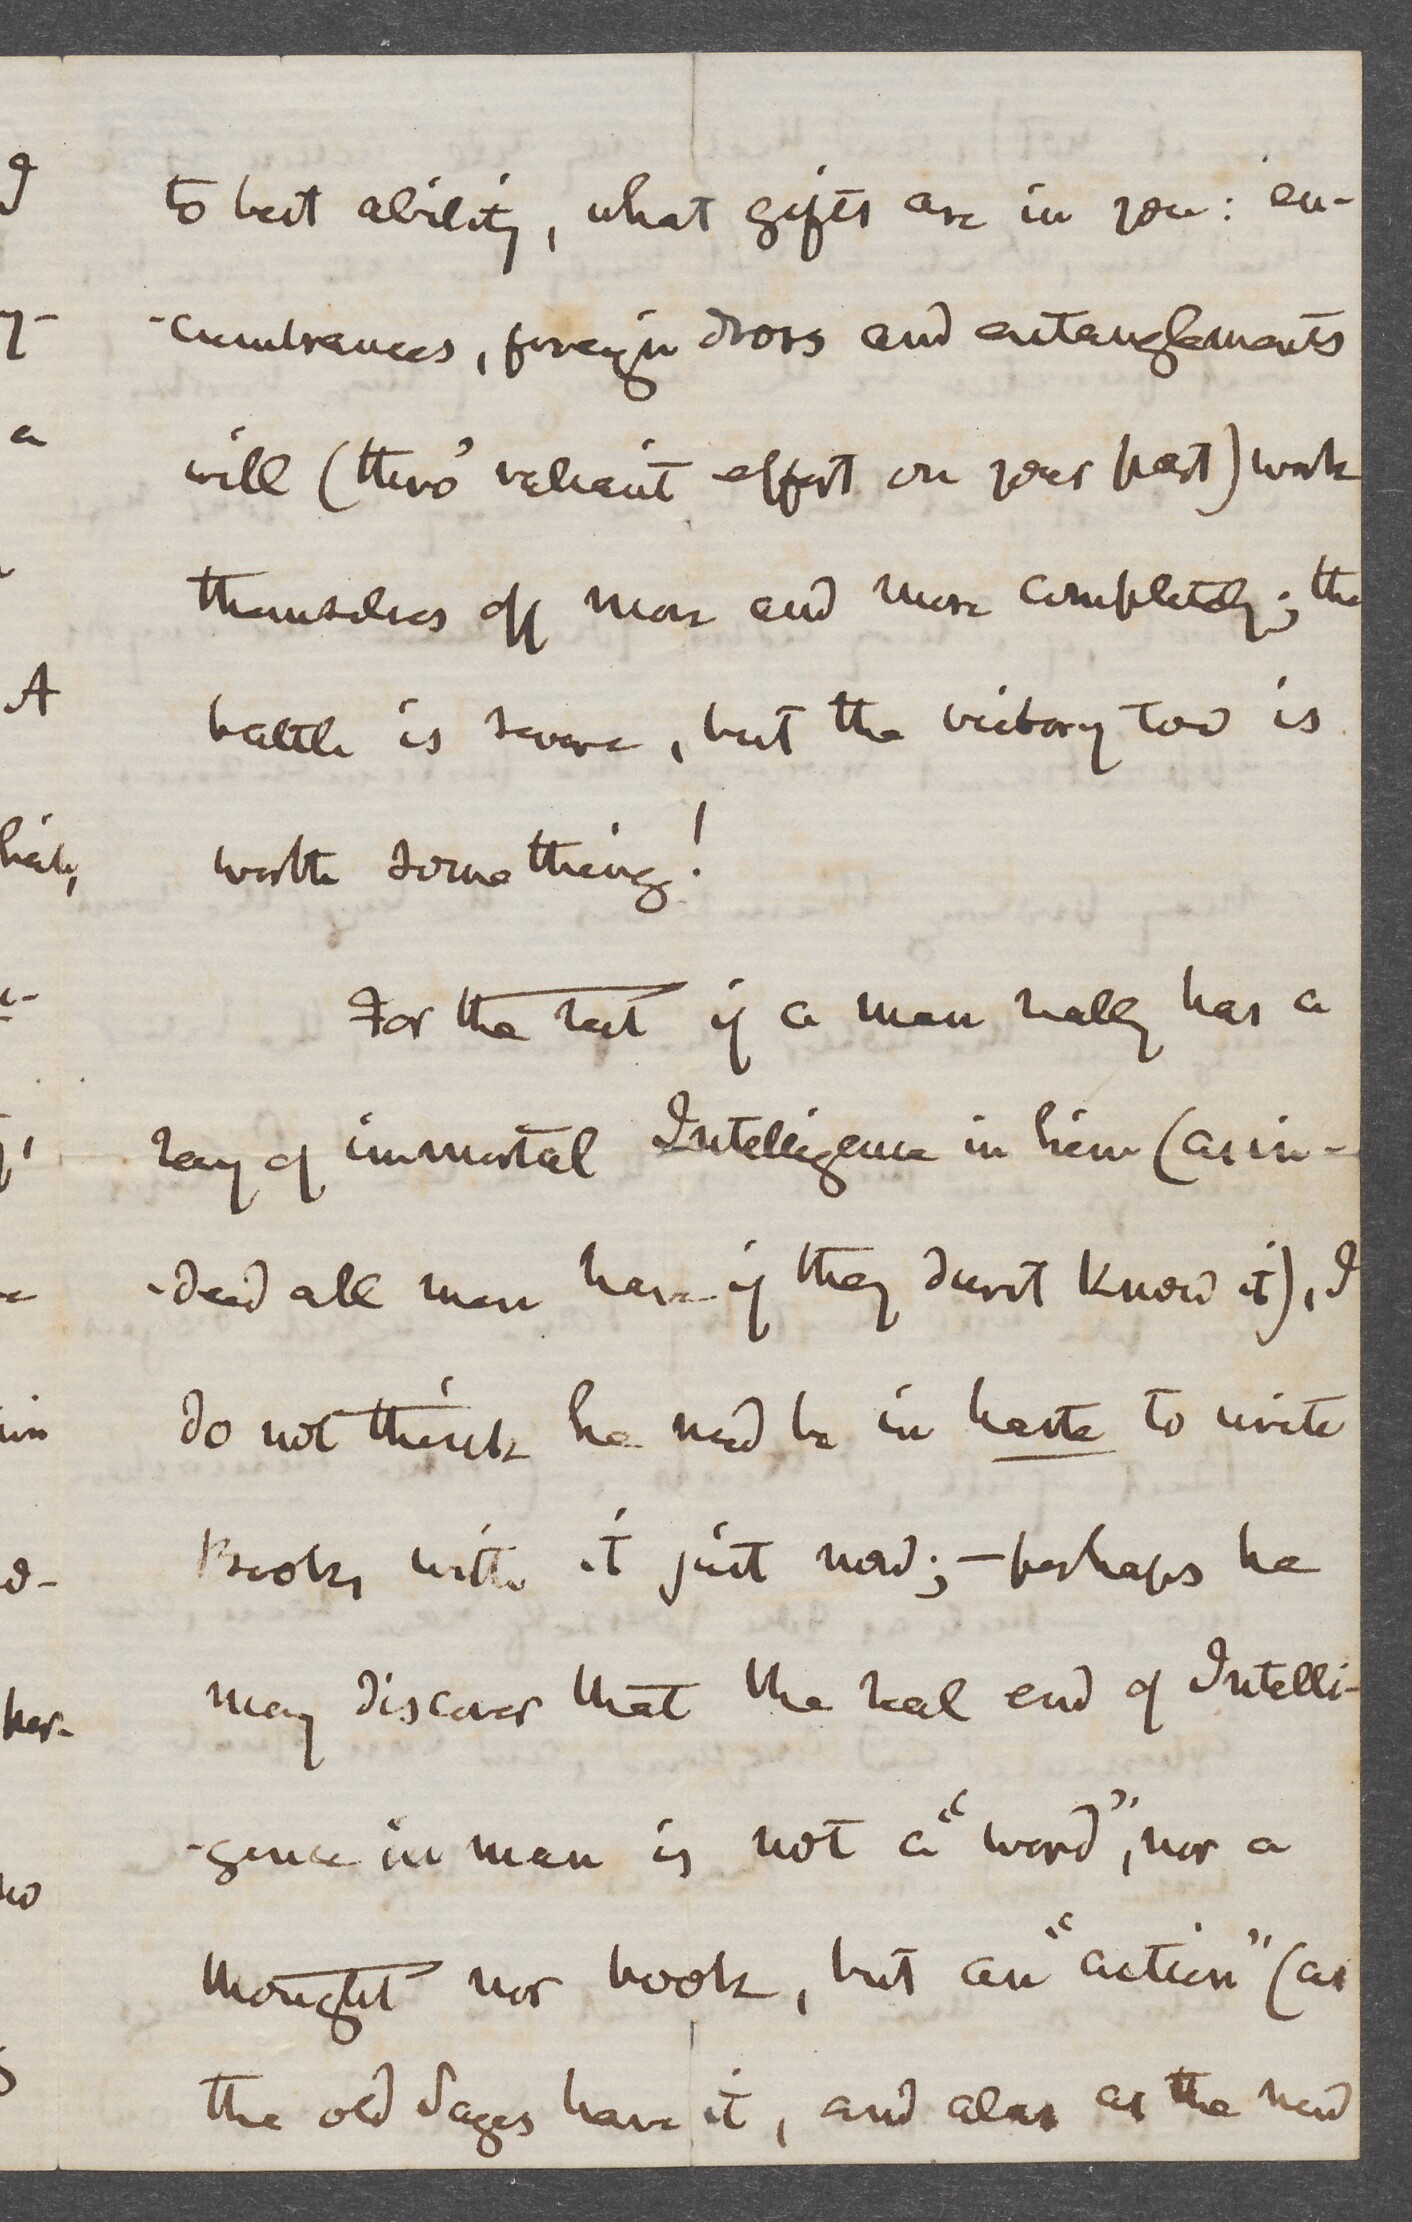 to best ability, what gifts are in you: en-
-cumbrances, foreign dross and entanglements
will (thro' valiant effort on your part) work
themselves off more and more completely; the
battle is severe, but the victory too is
worth something!
For the rest if a man really has a
ray of immortal Intelligence in him (as in-
-deed all men have if they durst know it), I
do not think he need be in haste to write
Books with it just now; — perhaps he
may discover that the real end of Intelli-
-gence in man is not a "word", nor a
thought nor book, but an "action" (as
the old Sages have it, and alas as the new